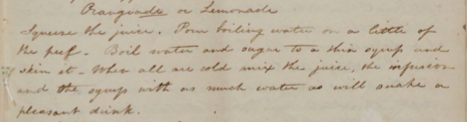 Orangeade or Lemonade
Squeeze the juice. Pour boiling water on a little of
the peel - Boil water and sugar to a thin syrup and
skim it - When all are cold mix the juice, the infusion
and the syrup with as much water as will make a
pleasant drink.